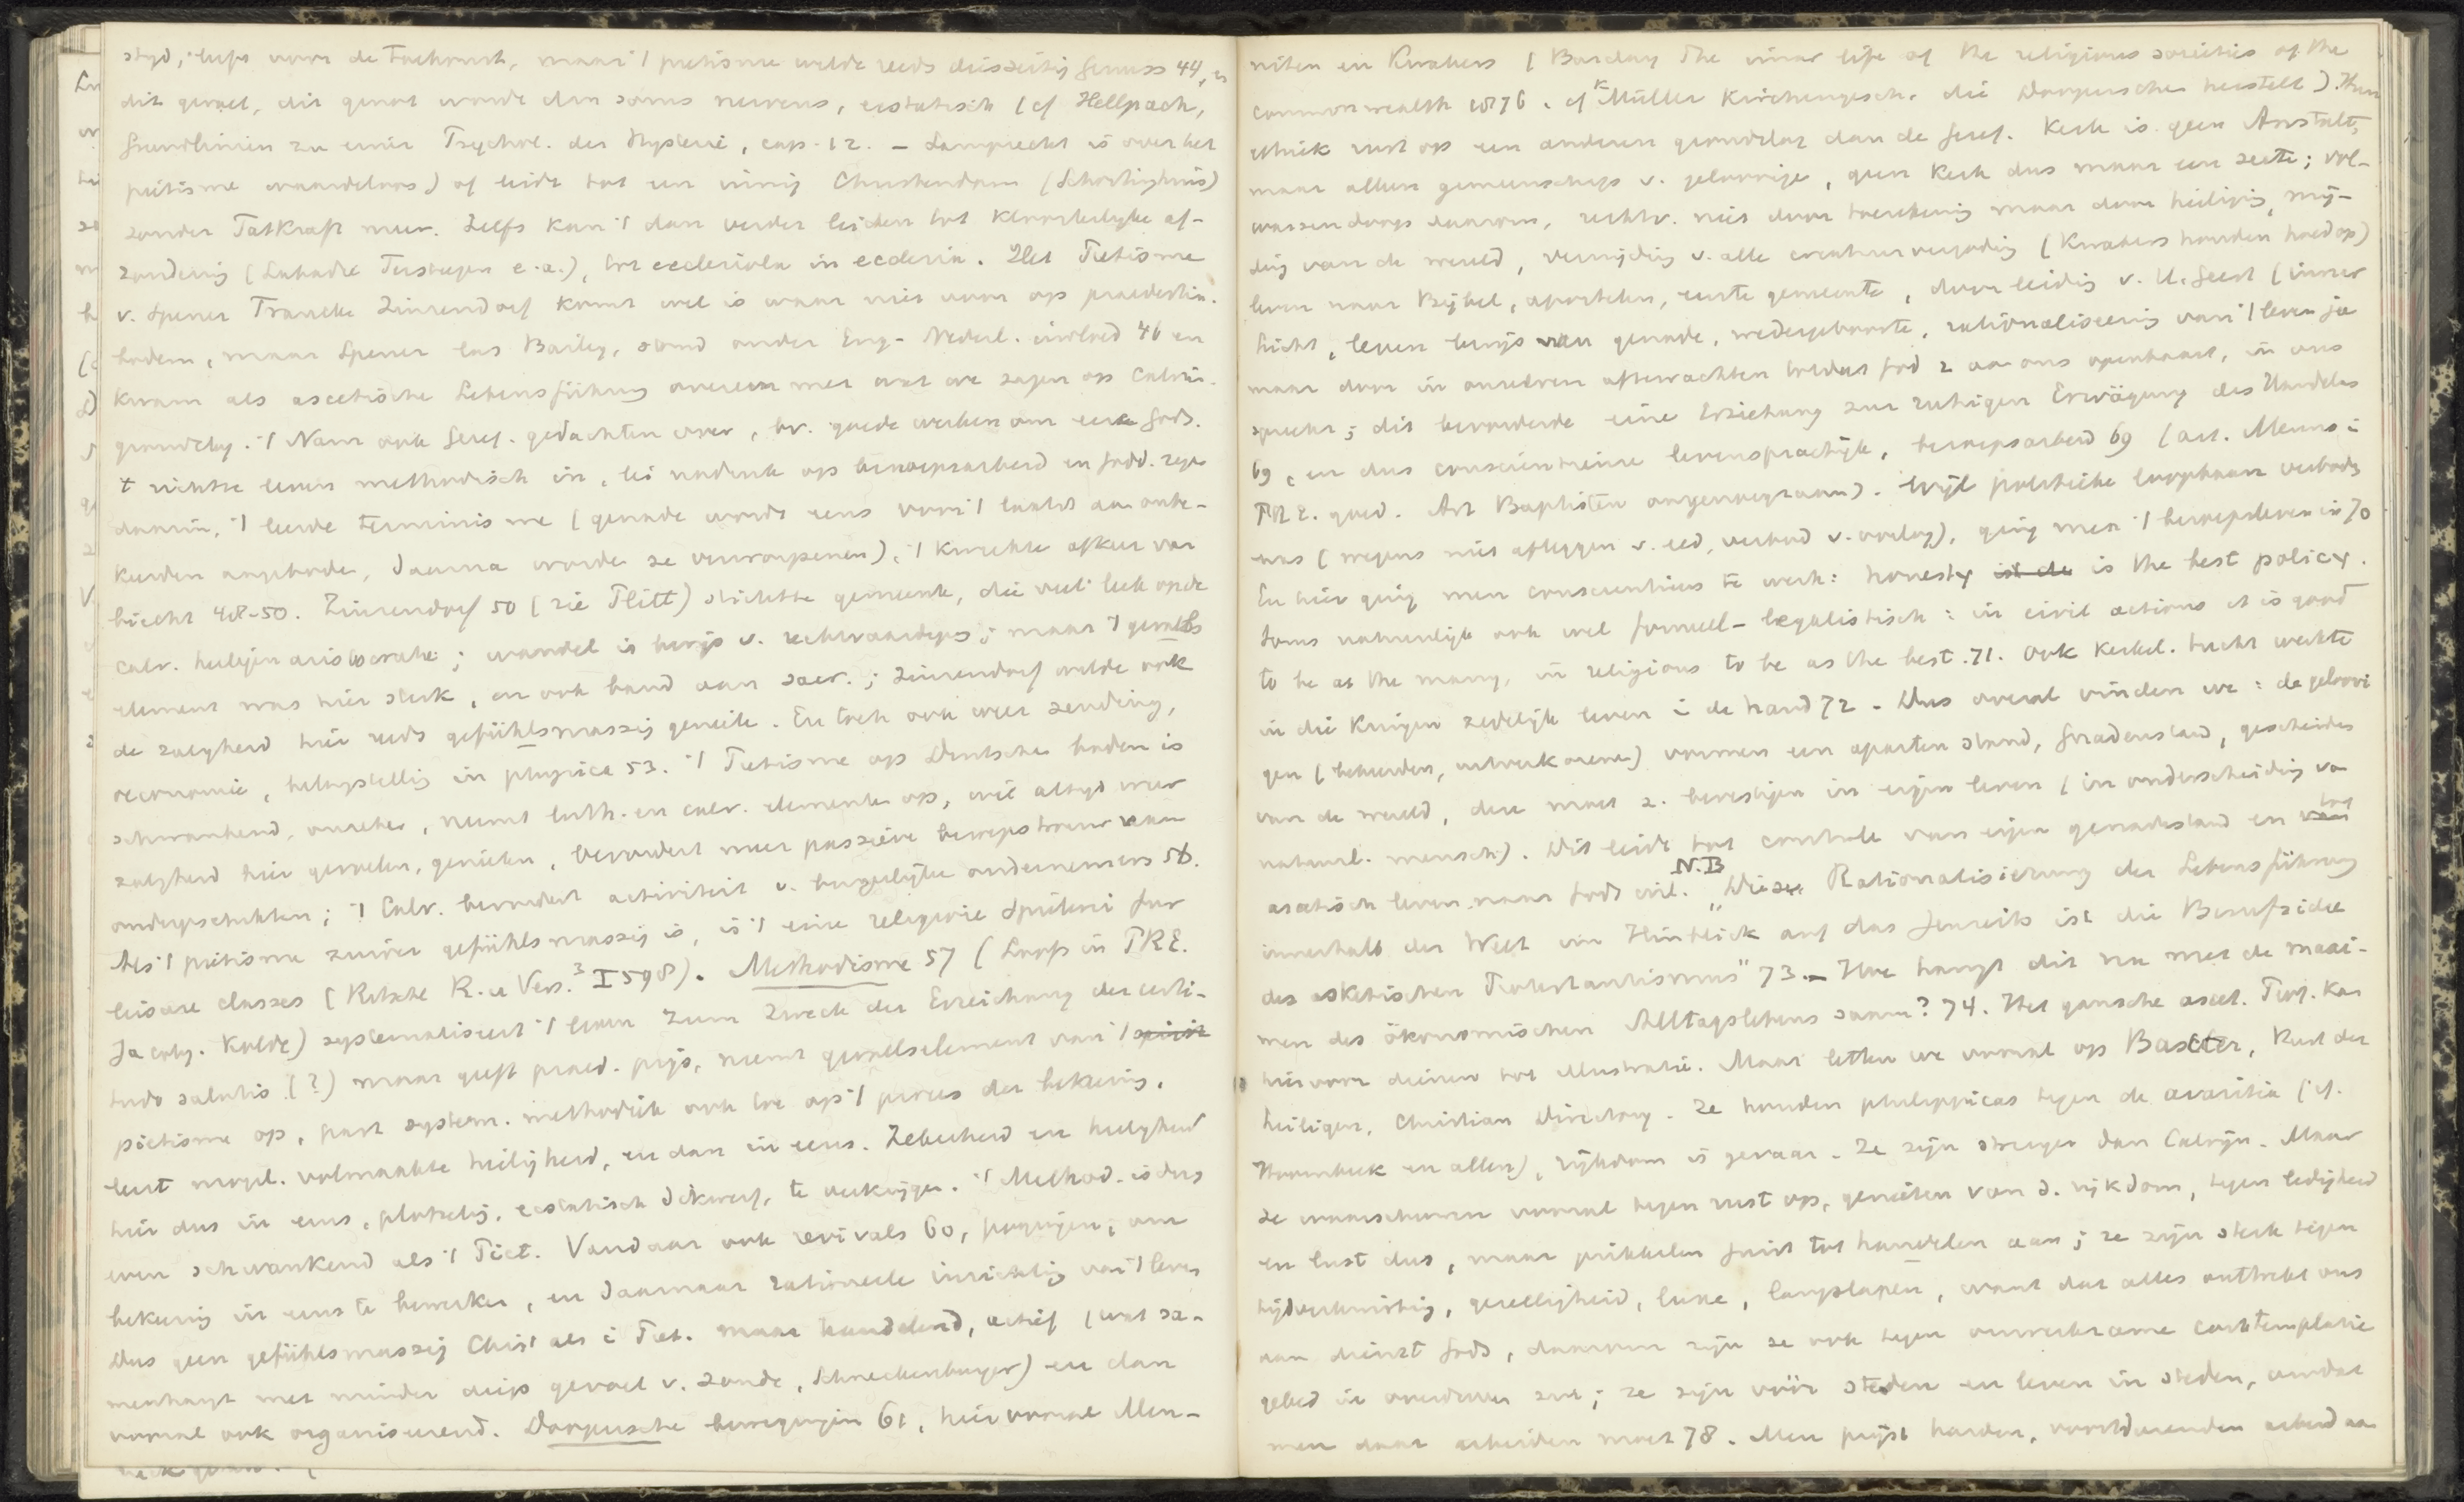 stryd, hips voor de toekomst, maar 't pietisme wilde reeds diesseitig Genuss 44, en
dit gevoel, dit genot wordt dan soms nerveus, ecstatisch (cf Hellpach,
Grundlinien zu einer Psychol. der Hysterie, cap. 12. – Lamprecht is over het
pietisme waardeloos) of leidt tot een innig Christendom (Schortinghuis)
zonder Tatkraft meer. Zelfs kan 't dan verder leiden tot Kloosterlyke af-
zondering (Labadie Tersteegen e.a.), tot ecclesiola in ecclesia. Het Pietisme
v. Spener Francke Zinzendorf komt wel is waar niet voor op praedestin.
bodem, maar Spener las Bailey, stond onder Eng.- Nederl. invloed 46 en
kwam als ascetische Lebensführung overeen met wat we zagen op Calvin.
grondslag. 't Nam ook Geref. gedachten over, bv. goede werken om eere Gods.
't richtte leven methodisch in, lei nadruk op beroepsarbeid en Godd. zegen
daarin, 't leerde terminisme (genade wordt eens voor 't laatst aan onbe-
keerden angeboden, daarna wordt ze verworpenen), 't kweekte afkeer van
biecht 48-50. Zinzendorf 50 (zie Plitt) stichtte gemeente, die veel leek op de
calv. heiligen aristocratie; wandel is bewys v. rechtvaardigg; maar 't gevoels
element was hier sterk, en ook band aan sacr.; Zinzendorf wilde ook
de zaligheid hier reeds gefühlsmassig geniete. En toch ook weer zending,
oeconomie, belangstelling in physica 53. 't Pietisme op Duitsche bodem is
schwankend, onzeker, neemt luth. en calv. elementen op, wil altyd weer
zaligheid hier gevoelen, genieten, bevordert meer passieve beroepstrouw van
ondergeschikten; 't Calv. bevordert activiteit v. burgerlijke ondernemers 56.
Als 't pietisme zuiver gefühlsmassig is, is 't eine religieuse Spielerei für
leisure classes (Ritschl R. u Vers.³ I 598). Methodisme 57 (Loofs in PRE.
Jacoby. Kolde) systematiseert 't leven zum Zweck der Erreichung der certi-
tudo salutis (?) maar geeft praed. prijs, neemt gevoelselement van 't
pietisme op, past system. methodiek ook toe op 't proces der bekeering,
leert mogel. volmaakte heiligheid, en dan in eens. Zekerheid en heiligheid
hier dus in eens, plotseling, ecstatisch dikwerf, te verkrijgen. 't Method. is dus
even schwankend als 't Piet. Vandaar ook revivals 60, pogingen, om
bekeering in eens te bewerken, en daarnaar rationeele inrichting van 't leven
Dus geen gefühlsmassig Chrst als i Piet. maar handelend, actief (wat sa-
menhangt met minder diep gevoel v. zonde, Schneckenburger) en dan
vooral ook organiseerend. Doopersche bewegingen 61, hier vooral Men-
niten en Kwakers (Barclay The inner life of the religious societies of the
commonwealth 1876. cf K Müller Kirchengesch. die Doopersche herstelt). Hun
ethiek rust op een anderen grondslag dan de Geref. Kerk is geen Anstalt,
maar alleen gemeenschap v. geloovige, geen Kerk dus maar een secte; vol-
wassendoop daarom, rechtv. niet door toerekening maar door heiliging, mij-
ding van de wereld, vermijding v. alle creatuurvergoding (Kwakers houden hoed op)
leven naar Bijbel, apostelen, eerste gemeente, door leiding v. H. Geest (inner
licht, leven bewijs van genade, wedergeboorte, rationaliseering van 't leven ja
maar door in onszelven afterwachten totdat God z aan ons openbaart, in ons
spreekt; dit bevorderde eine Erziehung zur ruhigen Erwägung des Handelns
69, en dus conscientieuse levenspractijk, beroepsarbeid 69 (art. Menno i
PRE. goed. Art Baptisten ongenoegzaam). Wijl politieke loopbaan verboden
was (wegens niet afleggen v. eed, verbod v. oorlog), ging men 't beroepsleven in 70
En hier ging men conscientieus te werk: honesty is the best policy.
Soms natuurlijk ook wel formeel-legalistisch: in civil actions it is good
to be as the many, in religious to be as the best. 71. Ook kerkel. tucht werkte
in die Kringen zedelijk leven i de hand 72 – Dus overal vinden we: de geloovi
gen (bekeerden, uitverkorene) vormen een aparten stand, Gnadenstand, gescheiden
van de wereld, dien moet z. bevestigen in eigen leven (in onderscheiding van
natuurl. mensch). Dit leidt tot controle van eigen genadestand en tot
ascetisch leven naar Gods wil. N.B „Diese Rationalisierung der Lebensführung
innerhalb der Welt im Hinblick auf das Jenseits ist die Berufsidee
des asketischen Protestantismus" 73 – Hoe hangt dit nu met de maxi-
men des ökonomischen Alltagslebens saam? 74. Het gansche ascet. Prot. kan
hiervoor dienen tot illustratie. Maar letten we vooral op Baxter, Rust der
heiligen, Christian Directory. Ze houden philippicas tegen de avaritia (cf.
Hoornbeek en allen), rijkdom is gevaar. Ze zijn strenger dan Calvijn. Maar
ze waarschuwen vooral tegen rust op, genieten van d. rijkdom, tegen ledigheid
en lust dus, maar prikkelen juist tot handelen aan; ze zijn sterk tegen
tijdverkwisting, gezelligheid, luxe, langslapen, want dat alles onttrekt ons
aan dienst Gods, daarom zijn ze ook tegen onwerkzame contemplatie
gebed in overdreven zin; ze zijn vóór steden en leven in steden, omdat
men daar arbeiden moet 78. Men prijst harden, voortdurenden arbeid aan